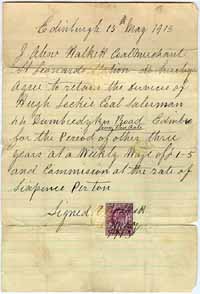 Edinburgh 13th May 1913
I Alew Walker Coal Merchant
St Leonards Station Edinburgh
agree to retain the services of
Hugh Leckie Coal Salesman
44 Dumbiedykes Road Edinbr
from this date
for the Period of other three
years at a Weekly Wage of 1-5
and Commission at the rate of
Sixpence Per ton
Signed